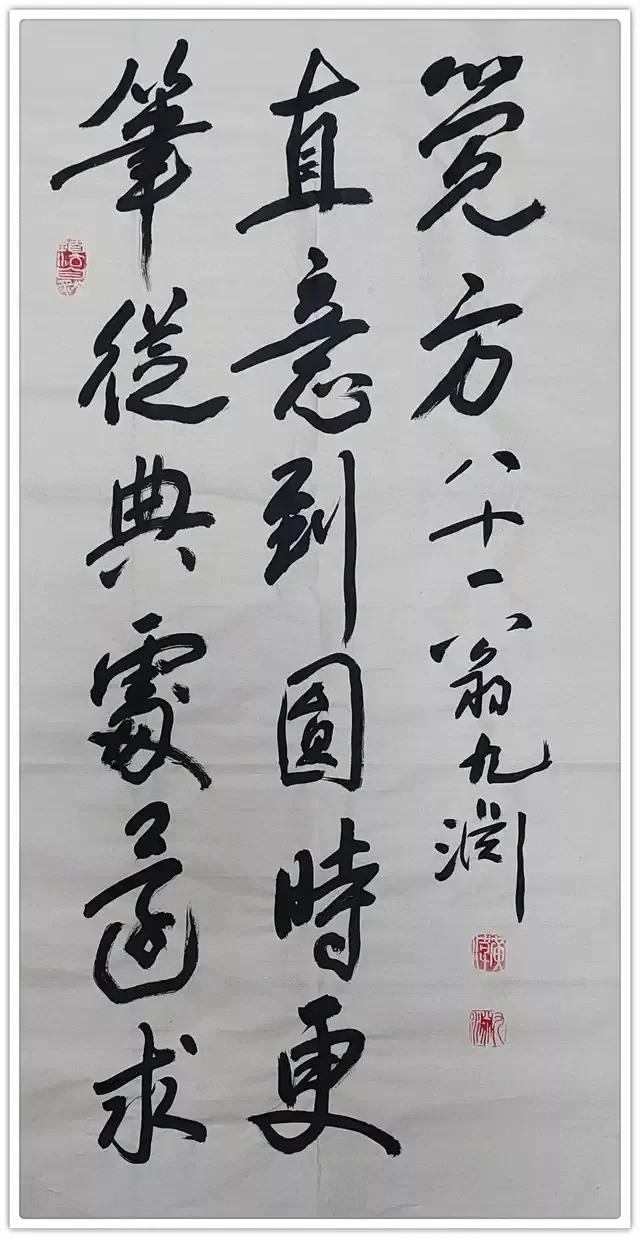 筆從典處還求
直意到圓時更
覓方八十一翁九淵